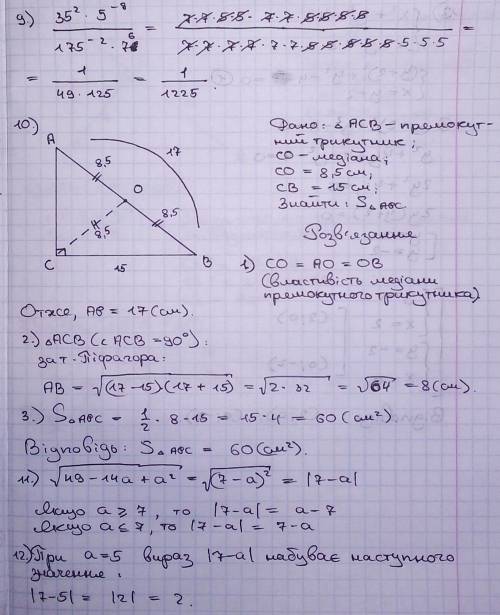 9) 35² · 5⁻⁸ / 175⁻² · 7⁶ = 7·7·5·5 · 7·7·5·5·5·5 / 7·7·7·7·7·7·5·5·5·5·5·5·5·5 =
= 1 / 49 · 125 = 1 / 1225.
10.)
A
8,5
17
O
8,5
8,5
C
15
B
Дано: △ ACB – премокут-
ний трикутник;
CO – медіана;
CO = 8,5 см,
CB = 15 см;
Знайти: S△ABC
Розв'язання
1) CO = AO = OB
(властивість медіани
премокутного трикутника)
Отже, AB = 17 (см).
2.) △ACB (∠ ACB = 90°):
за т. Піфагора:
AB = √(17-15)(17+15) = √2·32 = √64 = 8 (см).
3.) S△ABC = 1/2 · 8 · 15 = 15 · 4 = 60 (см²)
Відповідь: S△ABC = 60 (см²).
11.) √49 - 14a + a² = √(7-a)² = |7-a|
якщо a ≥ 7, то |7-a| = a-7
якщо a ≤ 7, то |7-a| = 7-a
12.) При a=5 вираз |7-a| набуває наступного
значення:
|7-5| = |2| = 2.